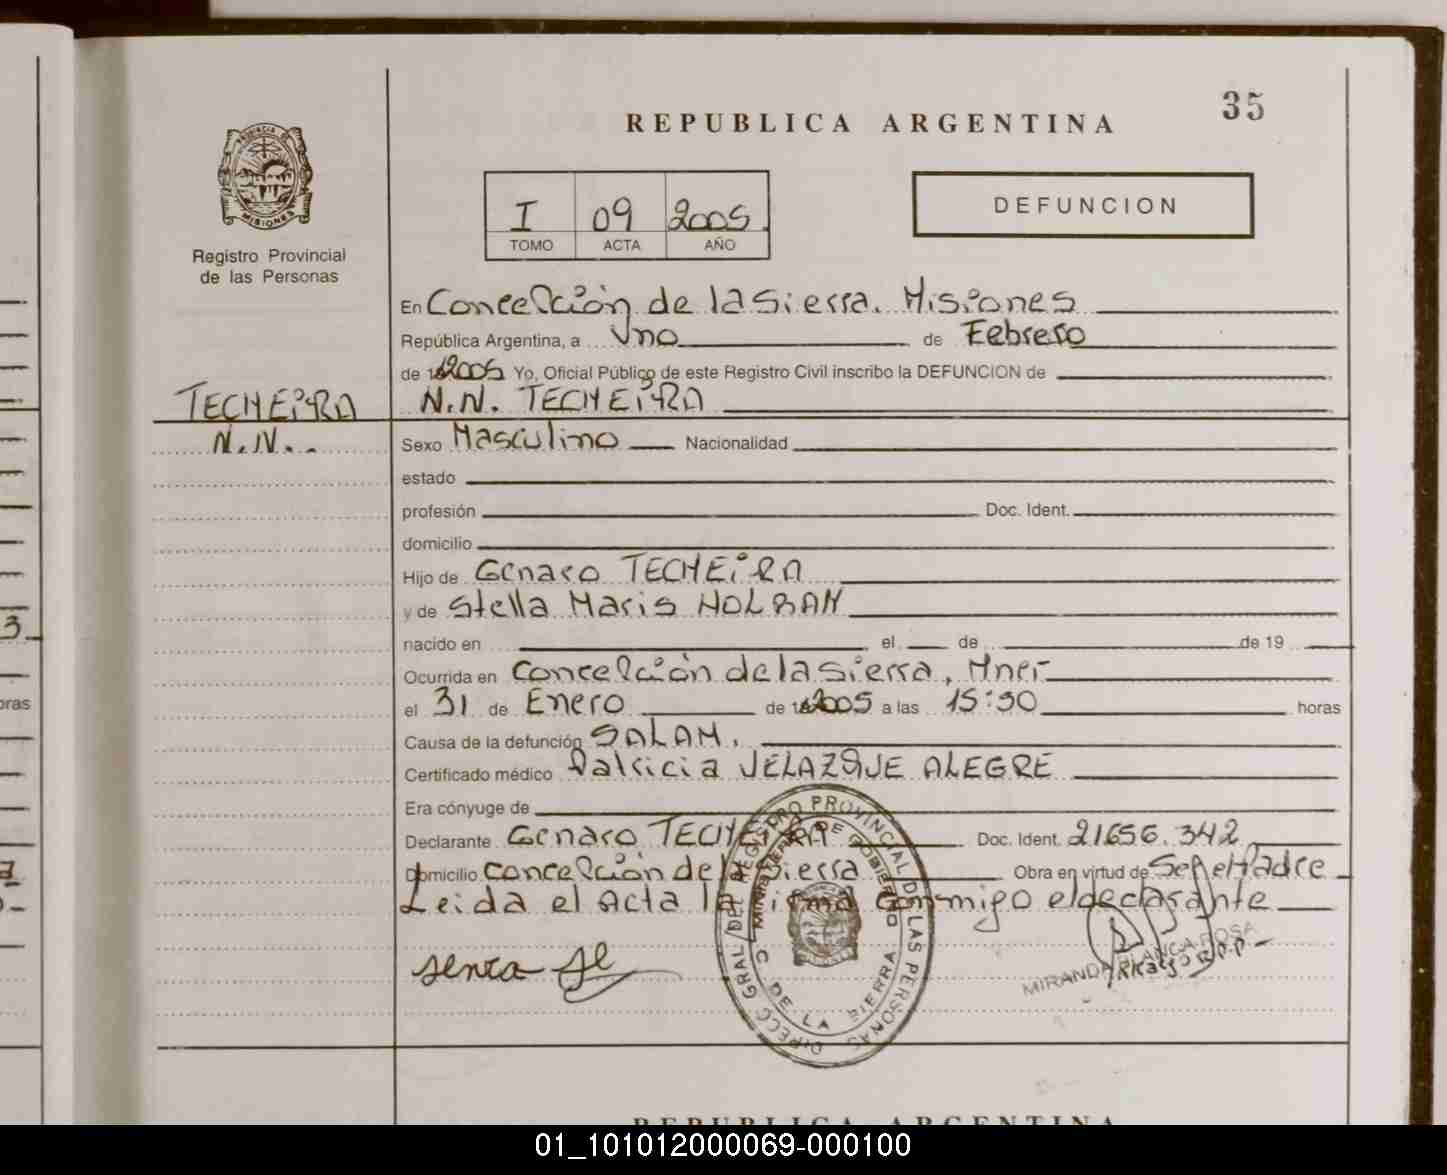 35
REPUBLICA ARGENTINA
I 09 2005
TOMO ACTA AÑO
DEFUNCION
PROVINCIA DE MISIONES
Registro Provincial
de las Personas
En Concepción de la Sierra. Misiones
República Argentina, a Uno de Febrero
de 2005 Yo, Oficial Público de este Registro Civil inscribo la DEFUNCION de
TECHEIRA N.N. TECHEIRA
N.N.
Sexo Masculino Nacionalidad
estado
profesión Doc. Ident.
domicilio
Hijo de Genaro TECHEIRA
y de Stella Maris HOLBAN
nacido en el de de 19
Ocurrida en Concepción de la Sierra, Mnes
el 31 de Enero de 2005 a las 15:30 horas
Causa de la defunción SALAM.
Certificado médico Patricia VELAZQUE ALEGRE
Era cónyuge de
Declarante Genaro TECHEIRA Doc. Ident. 21.656.342
Domicilio Concepción de la Sierra Obra en virtud de Ser el Padre
Leida el Acta la firma conmigo el declarante
MIRANDA BLANCA ROSA
DIRECC GRAL DEL REGISTRO PROVINCIAL DE LAS PERSONAS
MINISTERIO DE GOBIERNO
C DE LA SIERRA
REPUBLICA ARGENTINA
3
oras
01_101012000069-000100